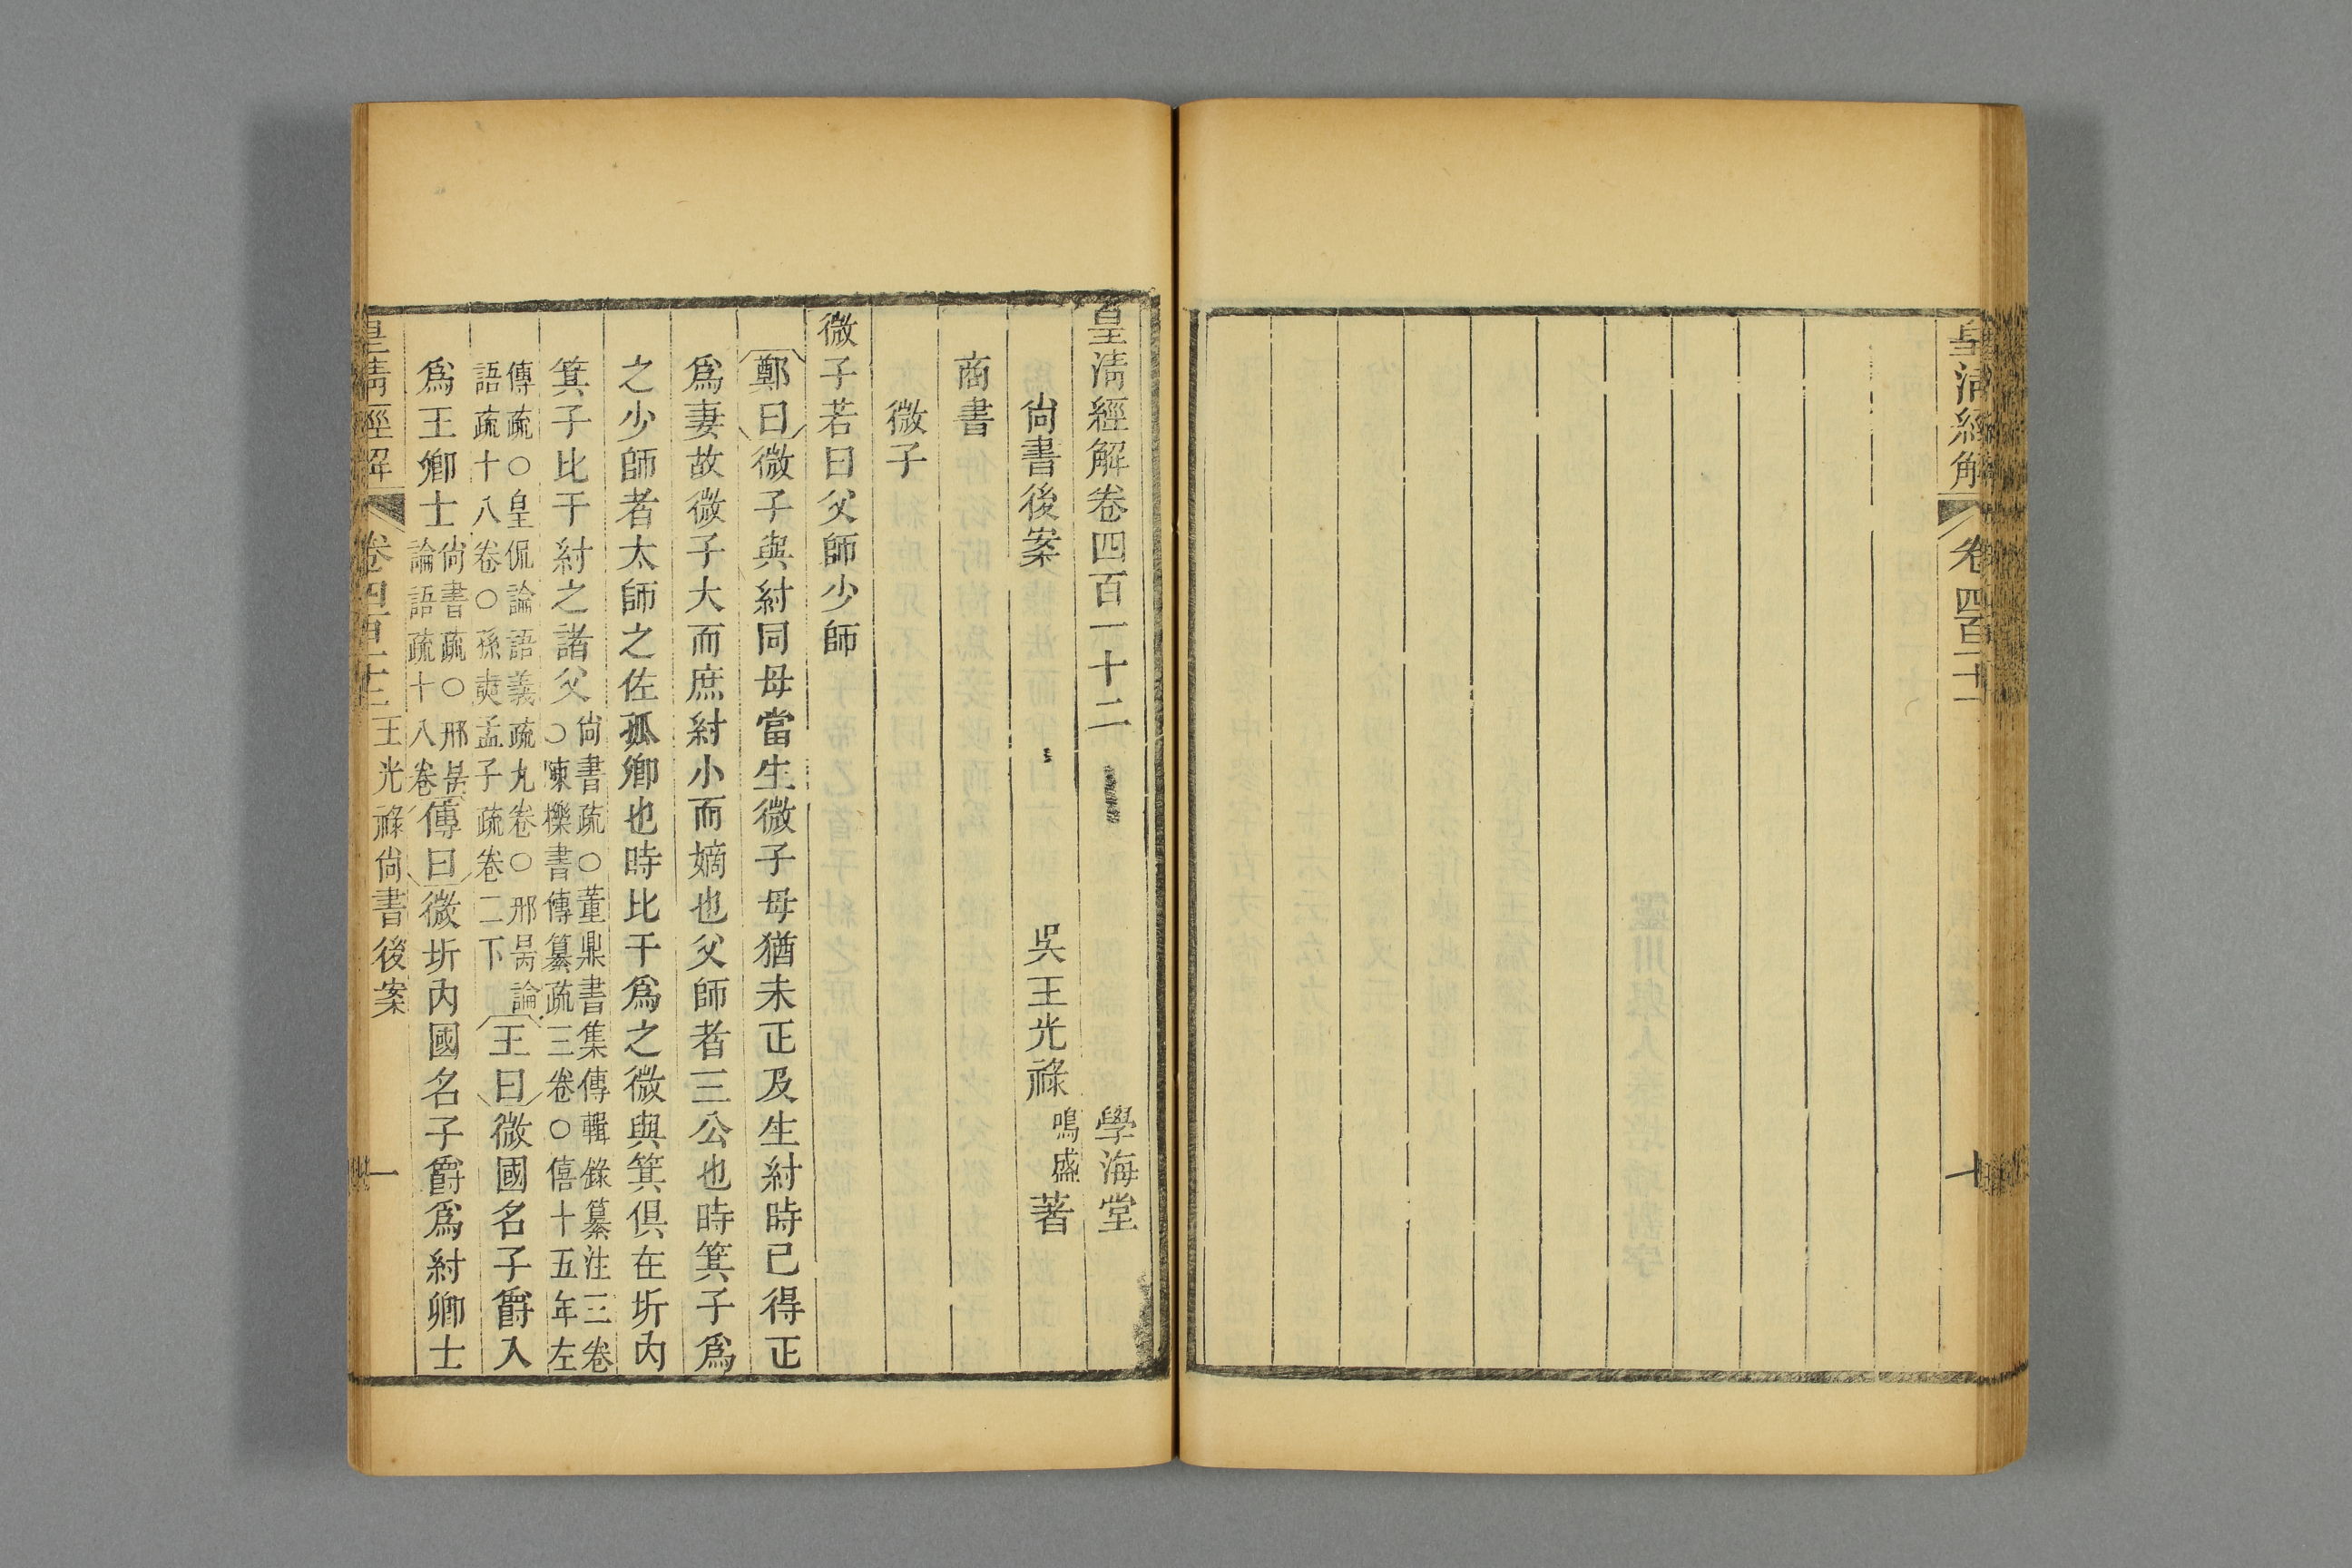 皇清經解
卷四百十一
十
皇清經解卷四百一十二
學海堂
尙書後案
吳王光祿鳴盛著
商書
微子
微子若曰父師少師
鄭曰微子與紂同母當生微子母猶未正及生紂時已得正
爲妻故微子大而庶紂小而嫡也父師者三公也時箕子爲
之少師者太師之佐孤卿也時比干爲之微與箕俱在圻內
箕子比干紂之諸父
尙書疏○董鼎書集傳輯錄纂注三卷
○陳櫟書傳纂疏三卷○僖十五年左
傳疏○皇侃論語義疏九卷○邢昺論
語疏十八卷○孫奭孟子疏卷二下
王曰微國名子爵入
爲王卿士
尙書疏○邢昺
論語疏十八卷
傳曰微圻內國名子爵爲紂卿士
皇清經解
卷四百十二
王光祿尙書後案
一